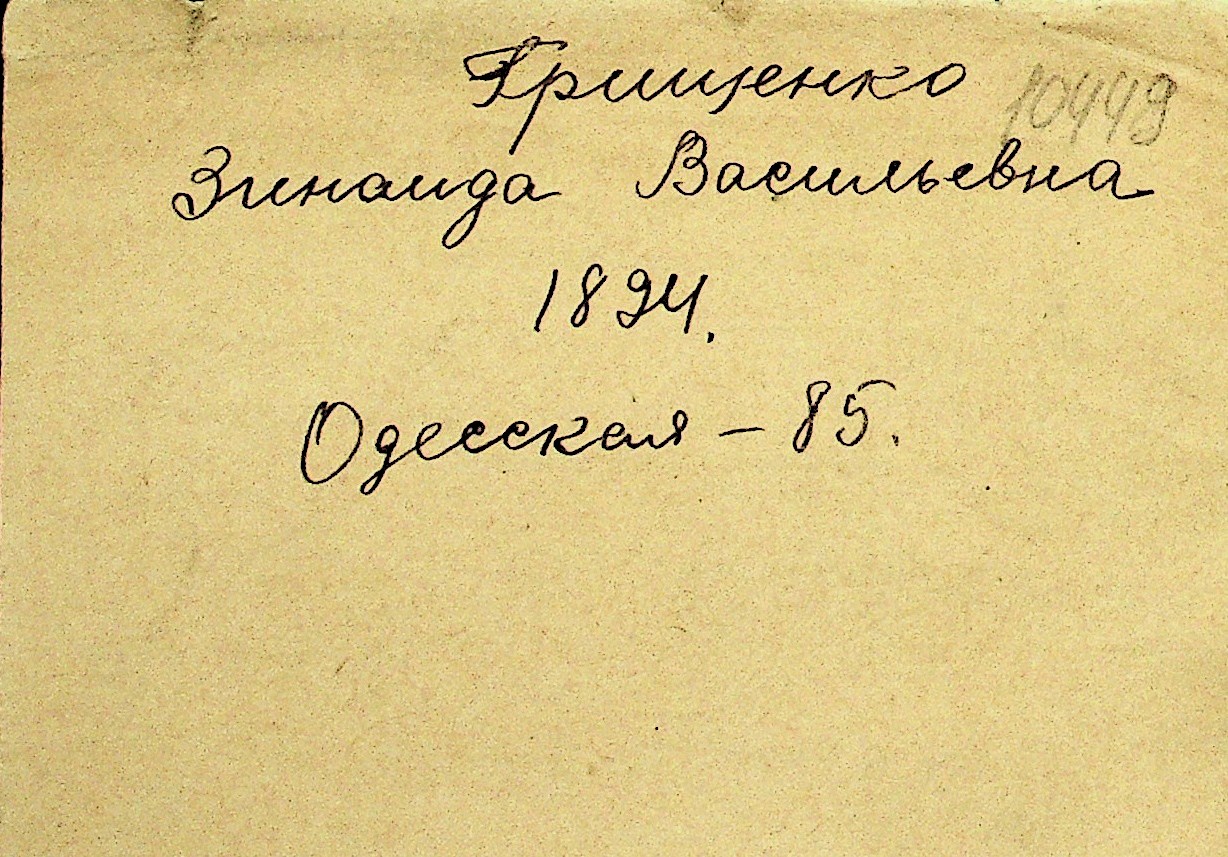 Грищенко
10449
Зинаида Васильевна
1894.
Одесская – 85.